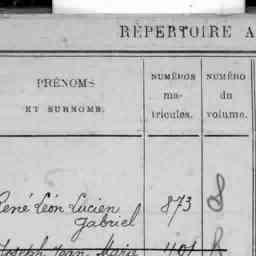 RÉPERTOIRE A
PRÉNOMS
ET SURNOMS.
NUMÉROS
ma-
tricules.
NUMÉRO
du
volume.
René Léon Lucien 873
Gabriel
Joseph Jean Marie 401